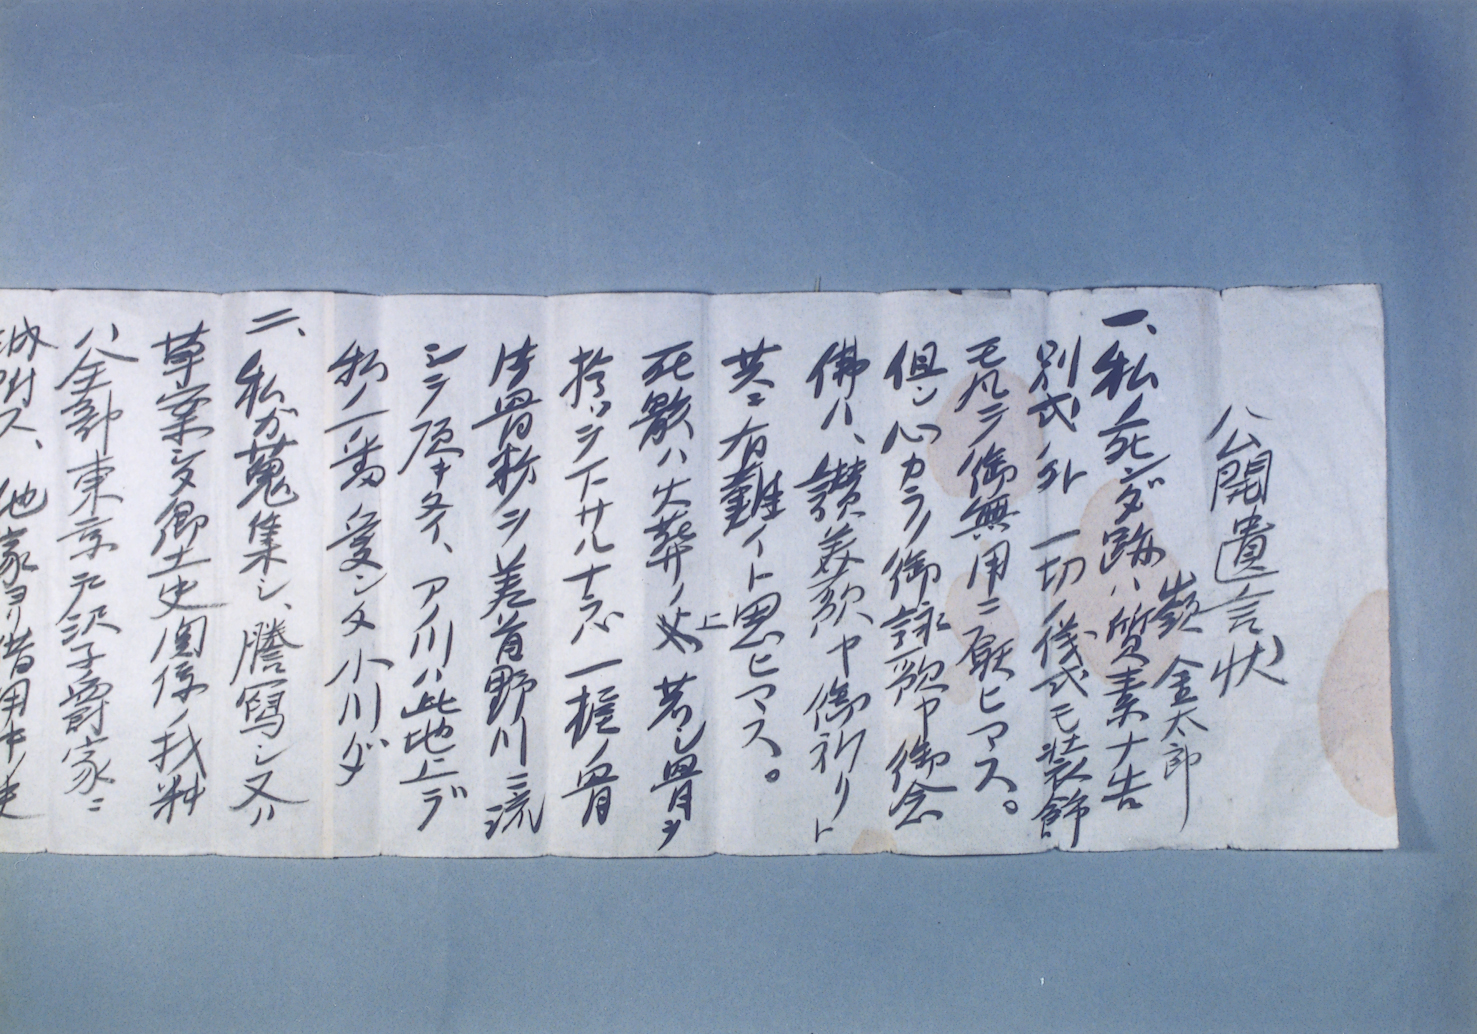 公開遺言状
嶺 金太郎
一、私ノ死ンダ跡ハ質素ナ告
別式ノ外一切ノ儀式モ装飾
モ凡テ御無用ニ願ヒマス。
但シ心カラノ御詠歌ヤ御念
佛ハ、讃美歌ヤ御祈リト
共ニ有難イト思ヒマス。
死骸ハ火葬ノ上 若シ骨ヲ
拾ツテ下サルナラバ一握ノ骨
ハ骨粉ニシテ差首野川ニ流
シテ頂キタイ、アノ川ハ此地上デ
私ノ一番愛シタ小川ダ
二、私ガ蒐集シ、謄寫シ又ハ
草案シタ郷土史関係ノ材料
ハ全部東京戸沢子爵家ニ
納附ス、他家ヨリ借用中ノ史